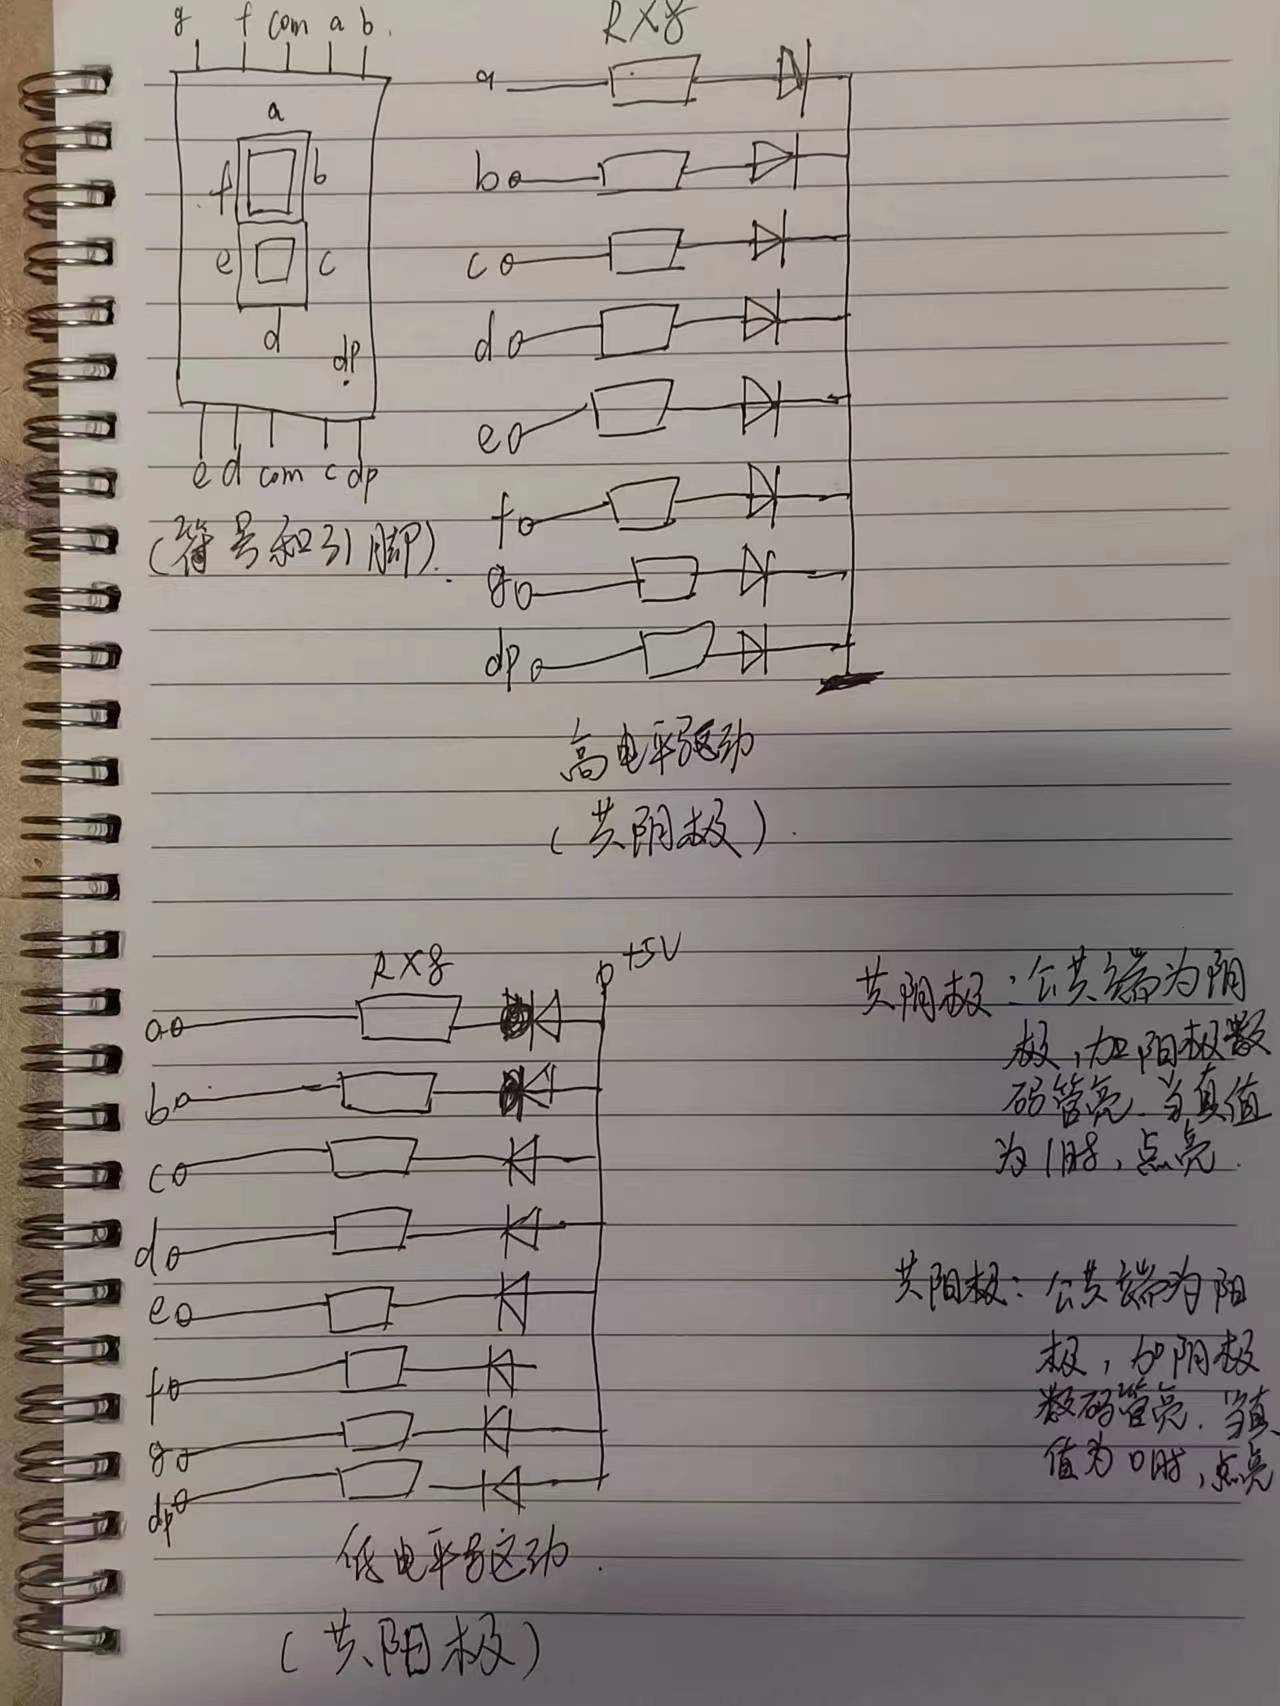 g f com a b
a
f b
e c
d
dp
e d com c dp
(符号和引脚).
RX8
a
b
c
d
e
f
g
dp
高电平驱动
(共阴极).
RX8 +5V
a
b
c
d
e
f
g
dp
低电平驱动.
(共阳极)
共阴极:公共端为阴
极,加阳极数
码管亮.当真值
为1时,点亮.
共阳极:公共端为阳
极,加阴极
数码管亮.当真
值为0时,点亮